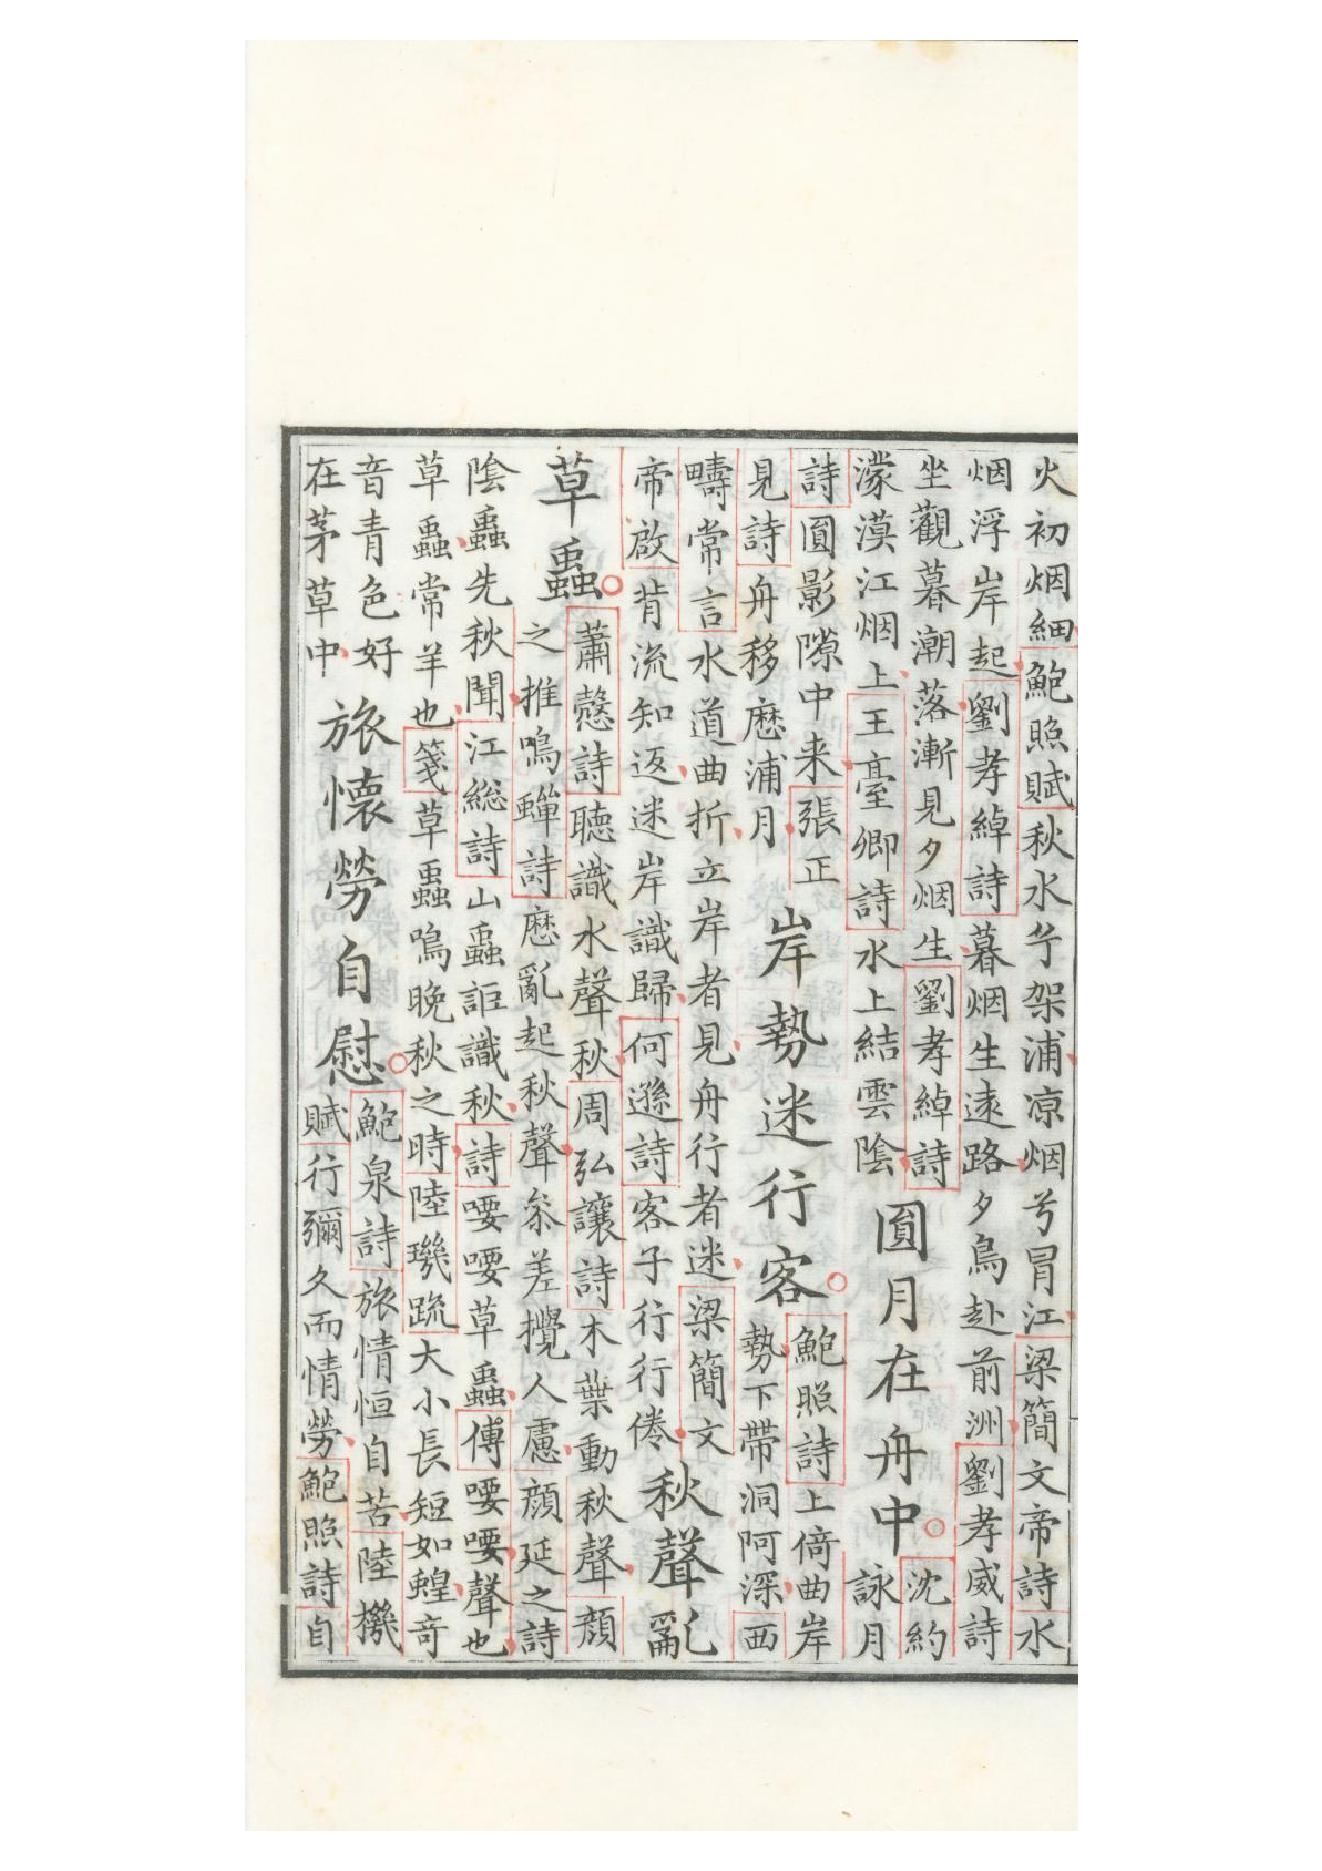 火初烟細鮑照賦秋水兮架浦凉烟兮冒江梁簡文帝詩水
烟浮岸起劉孝綽詩暮烟生遠路夕鳥赴前洲劉孝威詩
坐觀暮潮落漸見夕烟生劉孝綽詩
濛漠江烟上王臺卿詩水上結雲陰
圓月在舟中
沈約
詠月
詩圓影隙中来張正
見詩舟移歴浦月
岸勢迷行客
鮑照詩上倚曲岸
勢下帶洞阿深西
疇常言水道曲折立岸者見舟行者迷梁簡文
帝啟背流知返迷岸識歸何遜詩客子行行倦
秋聲亂
草蟲
蕭愨詩聴識水聲秋周弘讓詩木葉動秋聲顏
之推鳴蟬詩歴亂起秋聲叅差攪人慮顔延之詩
陰蟲先秋聞江総詩山蟲詎識秋詩喓喓草蟲傅喓喓聲也
草蟲常羊也箋草蟲鳴晚秋之時陸璣疏大小長短如蝗竒
音青色好
在茅草中
旅懷勞自慰
鮑泉詩旅情恒自苦陸機
賦行彌久而情勞鮑照詩自